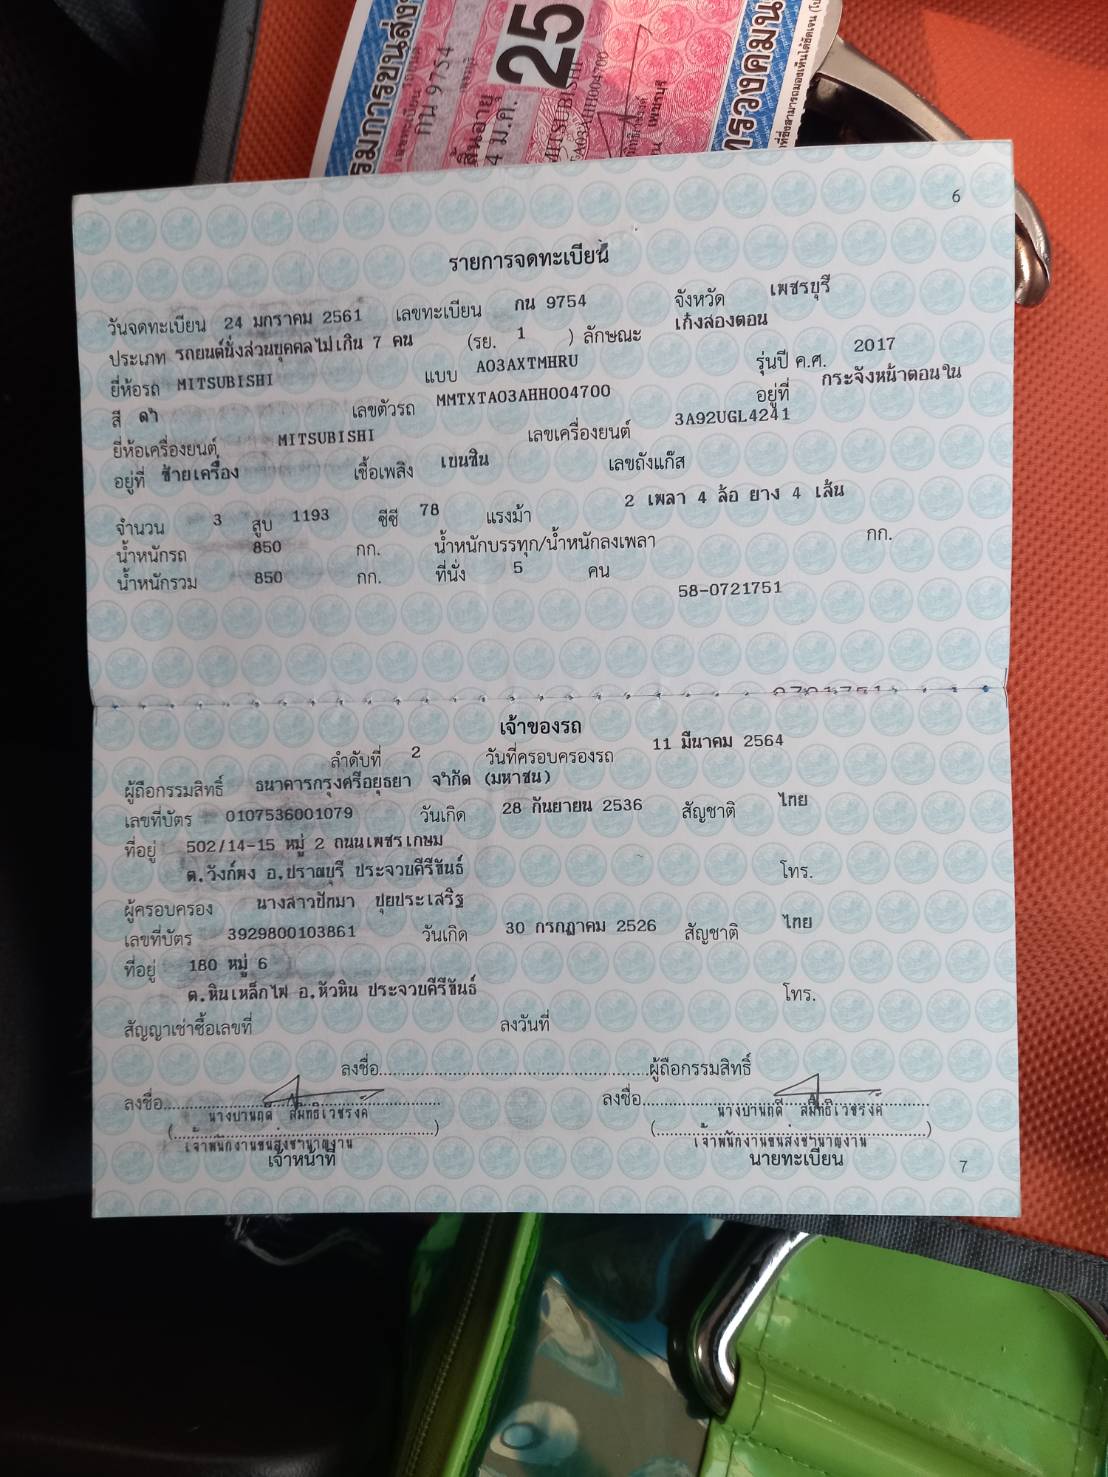 รมการขนส่ง
กน 9754
สิ้นอายุ
4 ม.ค.
25
MITSUBISHI
เพชรบุรี
6
รายการจดทะเบียน
วันจดทะเบียน 24 มกราคม 2561 เลขทะเบียน กน 9754 จังหวัด เพชรบุรี
ประเภท รถยนต์นั่งส่วนบุคคลไม่เกิน 7 คน (รย. 1 ) ลักษณะ เก๋งสองตอน
ยี่ห้อรถ MITSUBISHI แบบ A03AXTMHRU รุ่นปี ค.ศ. 2017
สี ดำ เลขตัวรถ MMTXTA03AHH004700 อยู่ที่ กระจังหน้าตอนใน
ยี่ห้อเครื่องยนต์ MITSUBISHI เลขเครื่องยนต์ 3A92UGL4241
อยู่ที่ ซ้ายเครื่อง เชื้อเพลิง เบนซิน เลขถังแก๊ส
จำนวน 3 สูบ 1193 ซีซี 78 แรงม้า 2 เพลา 4 ล้อ ยาง 4 เส้น
น้ำหนักรถ 850 กก. น้ำหนักบรรทุก/น้ำหนักลงเพลา กก.
น้ำหนักรวม 850 กก. ที่นั่ง 5 คน
58-0721751
เจ้าของรถ
ลำดับที่ 2 วันที่ครอบครองรถ 11 มีนาคม 2564
ผู้ถือกรรมสิทธิ์ ธนาคารกรุงศรีอยุธยา จำกัด (มหาชน)
เลขที่บัตร 0107536001079 วันเกิด 28 กันยายน 2536 สัญชาติ ไทย
ที่อยู่ 502/14-15 หมู่ 2 ถนนเพชรเกษม
ต.วังก์พง อ.ปราณบุรี ประจวบคีรีขันธ์ โทร.
ผู้ครอบครอง นางสาวปัทมา ปุยประเสริฐ
เลขที่บัตร 3929800103861 วันเกิด 30 กรกฎาคม 2526 สัญชาติ ไทย
ที่อยู่ 180 หมู่ 6
ต.หินเหล็กไฟ อ.หัวหิน ประจวบคีรีขันธ์ โทร.
สัญญาเช่าซื้อเลขที่ ลงวันที่
ลงชื่อ ผู้ถือกรรมสิทธิ์
ลงชื่อ ลงชื่อ
นางบานฤดี สมิทธิเวชรงค์ นางบานฤดี สมิทธิเวชรงค์
เจ้าพนักงานขนส่งชำนาญงาน เจ้าพนักงานขนส่งชำนาญงาน
เจ้าหน้าที่ นายทะเบียน
7